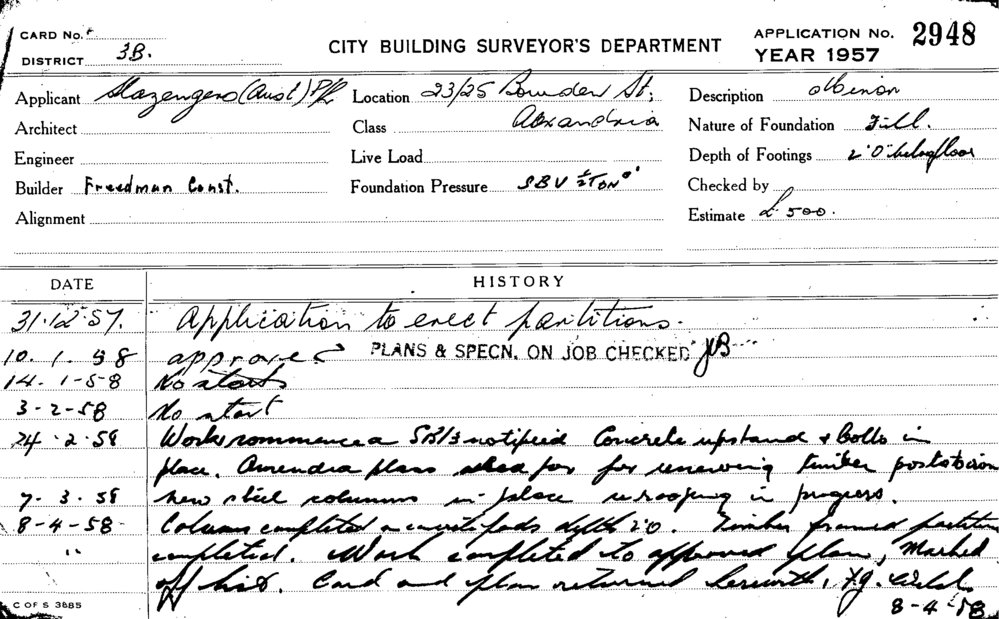 CARD No.
DISTRICT 3B.
CITY BUILDING SURVEYOR'S DEPARTMENT
APPLICATION No. 2948
YEAR 1957
Applicant Slazengers (Aust) P/L Location 23/25 Bowden St; Description
Architect Class Alexandria Nature of Foundation Fill.
Engineer Live Load Depth of Footings 2'0" below floor
Builder Freedman Const. Foundation Pressure SBV ½ TON Checked by
Alignment Estimate £500.
DATE HISTORY
31.12.57. Application to erect partitions.
10.1.58 approved PLANS & SPECN. ON JOB CHECKED
14.1-58 No start
3-2-58 No start
24.2.58 Work commenced notified Concrete upstand & bolts in
place. plans asked for for renewing timber posts
7.3.58 New steel columns in place reroofing in progress.
8-4-58 Columns completed depth 20. Timber framed partition
" completed. Work completed to approved plan, Marked
off list. Card and plan returned herewith,
8-4-58
C OF S 3685